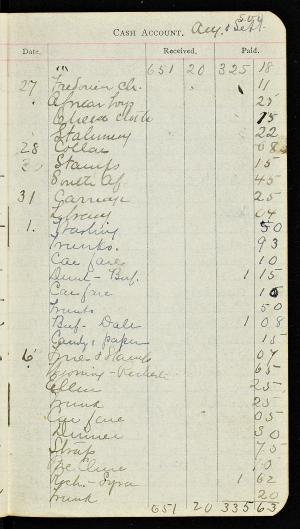 504
CASH ACCOUNT. Aug. & Sept.
Date. Received. Paid.
"" 651 20 325 18
27 11
25
Cheese cloth 15
Stationery 22
28 Collar 08
30 Stamps 15
South Af. 45
31 Carriage 25
Library 04
1. Washing 50
Trunks. 93
Car fares 10
Buf. 1 15
Car fare 10
50
Buf- Dale 1 08
Candy & paper 15
6 & Stamps 07
65
Ellen 25
Trunk 25
Car fare 05
Dinner 30
Strap 75
McClure 10
Roch- Syra 1 62
Trunk 20
651 20 335 63